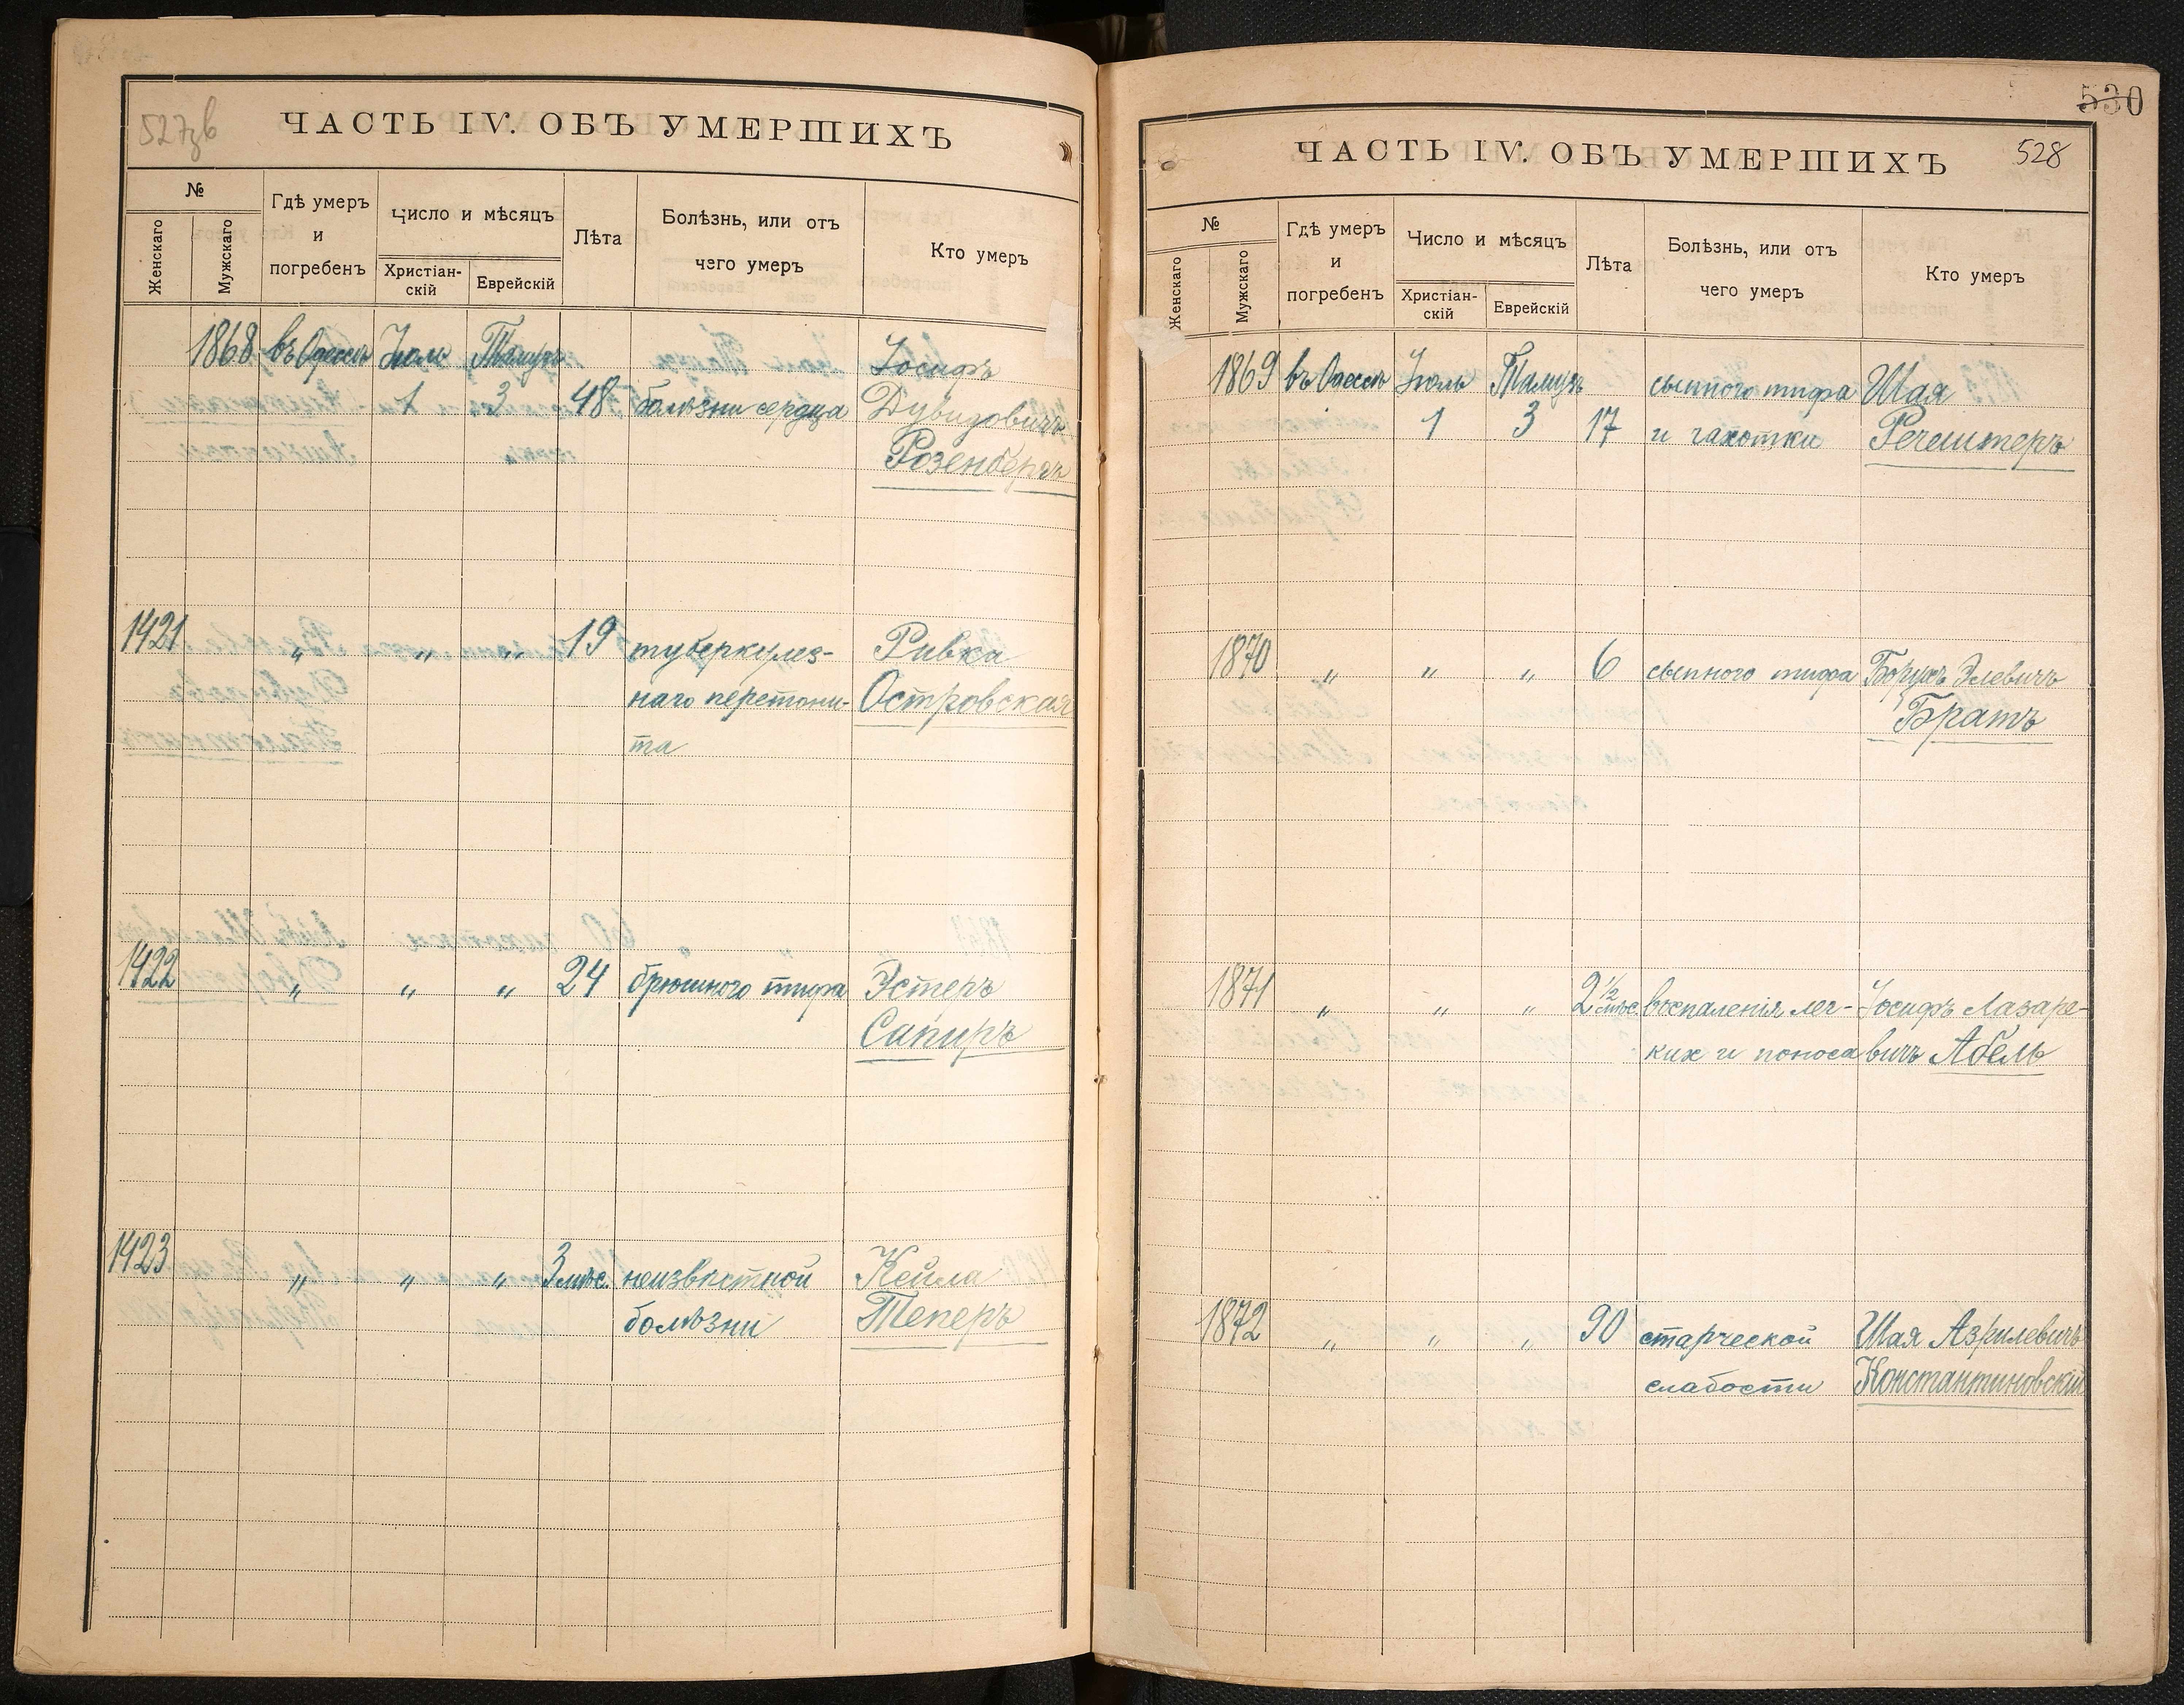 527зв
ЧАСТЬ IV. ОБЪ УМЕРШИХЪ
№
Женскаго
Мужскаго
Гдѣ умеръ
и
погребенъ
Число и мѣсяцъ
Христіан-
скій
Еврейскій
Лѣта
Болѣзнь, или отъ
чего умеръ
Кто умеръ
1868 въ Одессѣ Іюль Тамузъ Іосифъ
1 3 48 болѣзни сердца Дувидовичъ
Розенбергъ
1421 " " " 19 туберкулез- Ривка
наго перетони- Островская
та
1422 " " " 24 брюшного тифа Эстеръ
Сапиръ
1423 " " " 3 мѣс. неизвѣстной Кейла
болѣзни Теперъ
530
ЧАСТЬ IV. ОБЪ УМЕРШИХЪ 528
№
Женскаго
Мужскаго
Гдѣ умеръ
и
погребенъ
Число и мѣсяцъ
Христіан-
скій
Еврейскій
Лѣта
Болѣзнь, или отъ
чего умеръ
Кто умеръ
1869 въ Одессѣ Іюль Тамузъ сыпного тифа Шая
1 3 17 и чахотки Речештеръ
1870 " " " 6 сыпного тифа Борухъ Элевичъ
Братъ
1871 " " " 2 1/2 мѣс. воспаленія лег- Іосифъ Лазаре-
кихъ и поноса вичъ Абель
1872 " " " 90 старческой Шая Азрилевичъ
слабости Константиновскій